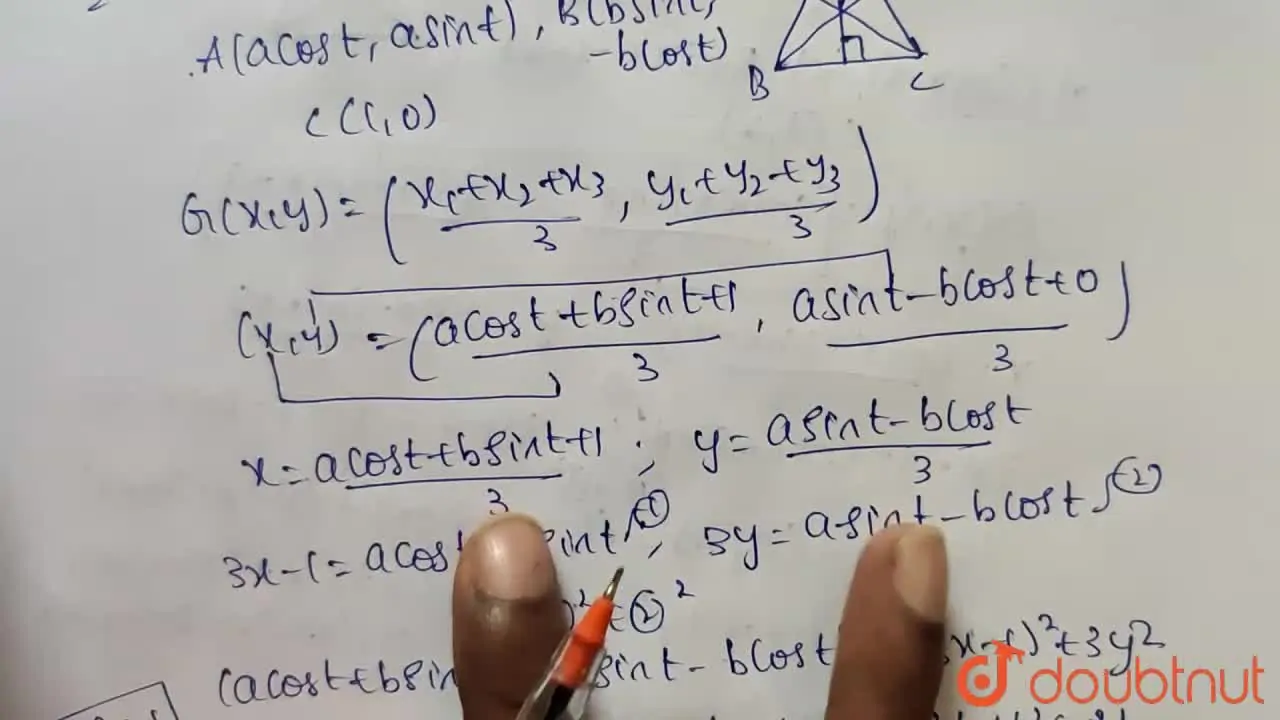 A(acost, asint), B(bsint,
-bcost)
B C
C(1,0)
G(x,y) = (x1+x2+x3/3, y1+y2+y3/3)
(x,y) = (acost+bsint+1/3, asint-bcost+0/3)
x = acost+bsint+1/3 ; y = asint-bcost/3
3x-1 = acost sint ①, 3y = asint-bcost ②
² + ②²
(acost+bsin sint-bcost x-1)²+3y2
doubtnut